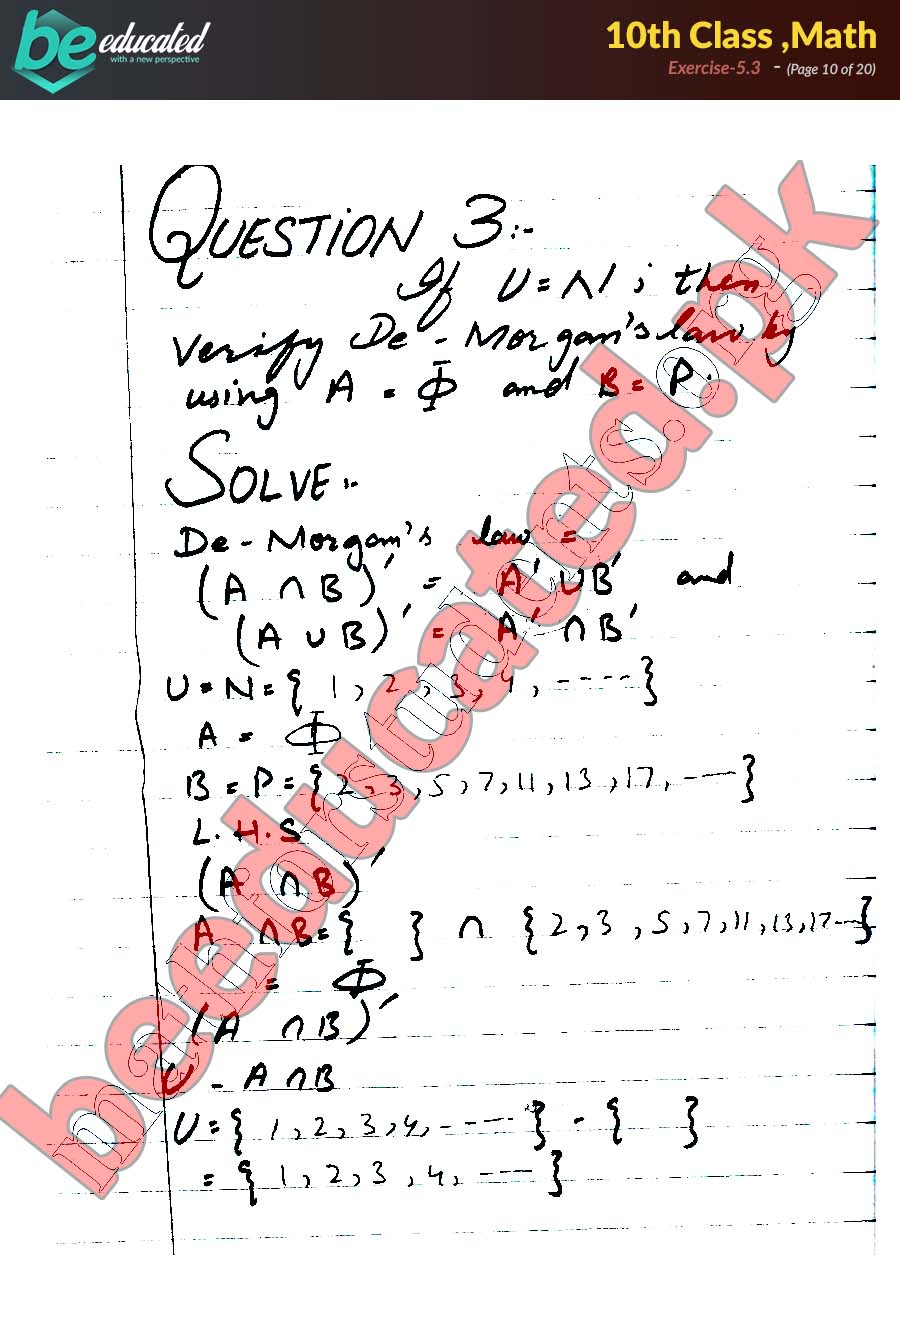 be educated
with a new perspective
10th Class ,Math
Exercise-5.3 - (Page 10 of 20)
QUESTION 3:-
If U = N ; then
Verify De-Morgan's law by
using A = Φ and B = P.
SOLVE:-
De-Morgan's law =
(A ∩ B)' = A' ∪ B' and
(A ∪ B)' = A' ∩ B'
U = N = { 1, 2, 3, 4, ---- }
A = Φ
B = P = { 2, 3, 5, 7, 11, 13, 17, --- }
L.H.S
(A ∩ B)'
A ∩ B = { } ∩ { 2, 3, 5, 7, 11, 13, 17-- }
= Φ
(A ∩ B)'
U - A ∩ B
U = { 1, 2, 3, 4, ----- } - { }
= { 1, 2, 3, 4, --- }
beeducated.pk